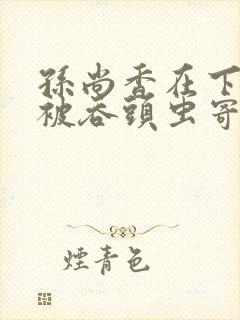 孫尚香在下
被吞頭虫寄
煙青色